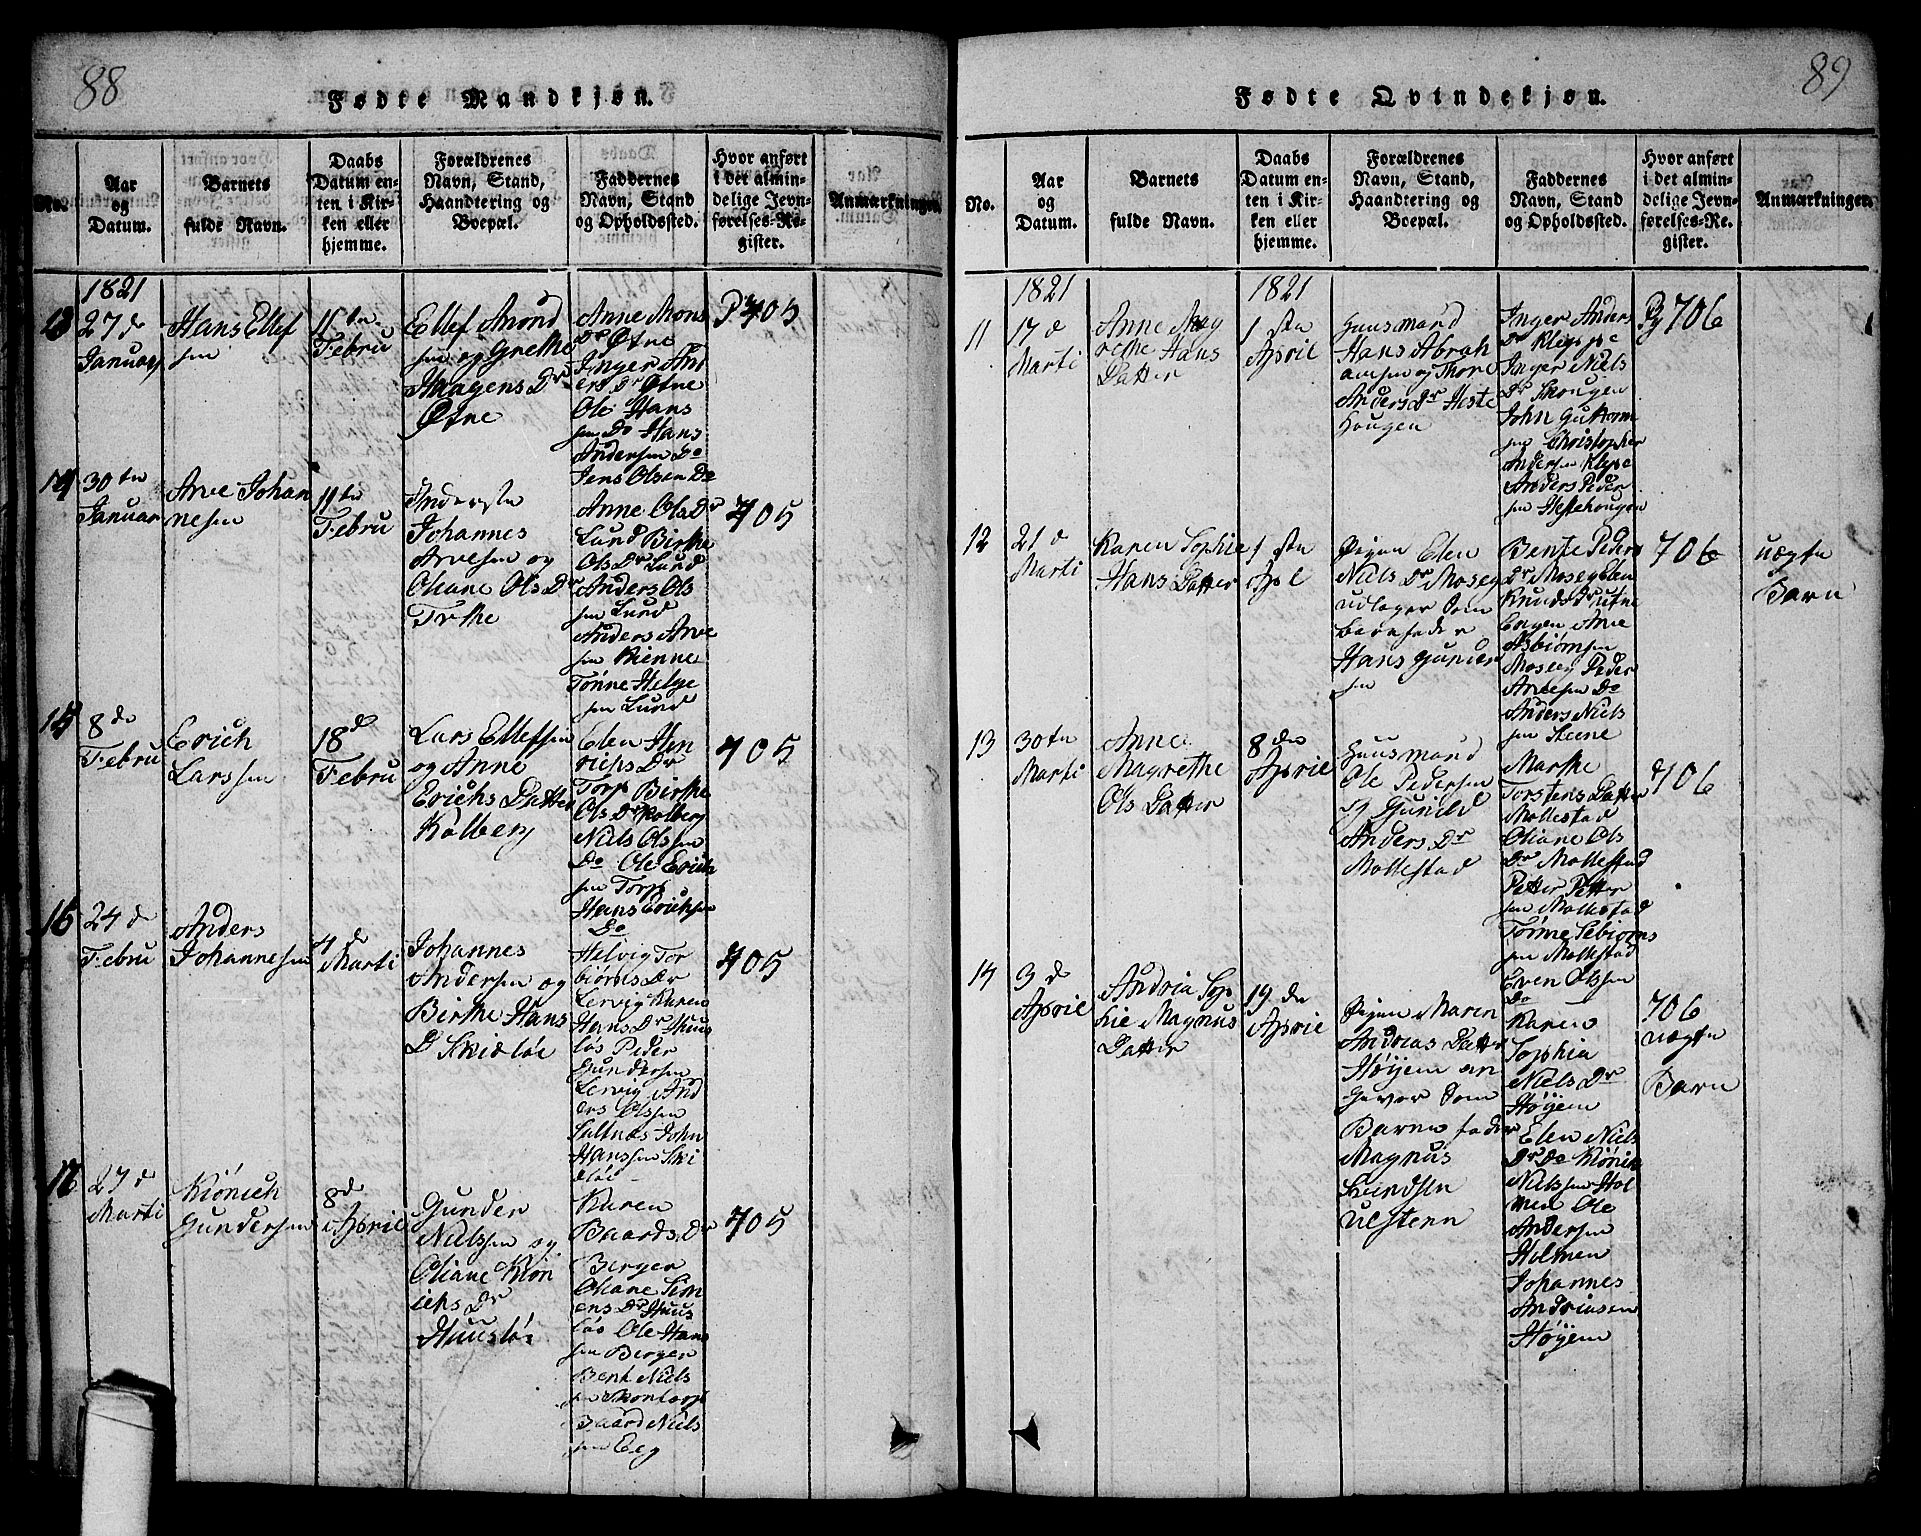 88
Fødte Mandkjøn.
No.
Aar
og
Datum.
Barnets
fulde Navn.
Daabs
Datum en-
ten i Kir-
ken eller
hjemme.
Forældrenes
Navn, Stand,
Haandtering og
Boepæl.
Faddernes
Navn, Stand
og Opholdssted.
Hvor anført
i det almin-
delige Jevn-
førelses-Re-
gister.
Anmærkninger.
1821
13
27 de
Januar
Hans Ellef
sen
11 ten
Febru
Ellef Amond
sen og Grethe
Haagens Dr
Øtne
Anne Mons
Dr Øtne
Inger And
ers Dr Øtne
Ole Hans
sen Do Hans
Andersen Do
Jens Olsen Do
Pg 705
14
30 ten
Januar
Arve Johan
nesen
11 ten
Febru
Inderste
Johannes
Arvesen og
Oliane Ols Dr
Anne Ols Dr
Lund Birthe
Ols Dr Lund
Anders Ols
sen Lund
Anders Arve
sen Kienne
Tønne Helge
sen Lund
705
15
8 de
Febru
Erich
Larssen
18 de
Febru
Lars Ellefsen
og Anne
Erichs Datter
Kolberg
Elen Hen
richs Dr
Torp Birthe
Ols Dr Kolberg
Niels Olssen
Do Ole Erich
sen Torp
Hans Erichsen
Do
705
16
24 de
Febru
Anders
Johannesen
4 de
Marti
Johannes
Andersen og
Birthe Hans
Dr Skisløe
Helvig Tor
biørns Dr
Lervig Karen
Hans Dr Huus
løs Peder
Gundersen
Lervig And
ers Olssen
Saltnæs John
Hanssen Ski
sløe
705
17
27 de
Marti
Kiønich
Gundersen
8 de
April
Gunder
Nielssen og
Oliane Kiøn
ichs Dr
Huusløe
Karen
Baards Dr
Berger
Oliane Sim
ens Dr Huus
løs Ole Hans
sen Berger
Bent Niels
sen Skontorp
Baard Niels
sen Eeg
705
89
Fødte Qvindekjøn.
No.
Aar
og
Datum.
Barnets
fulde Navn.
Daabs
Datum en-
ten i Kir-
ken eller
hjemme.
Forældrenes
Navn, Stand,
Haandtering og
Boepæl.
Faddernes
Navn, Stand
og Opholdssted.
Hvor anført
i det almin-
delige Jevn-
førelses-Re-
gister.
Anmærkninger.
1821
1821
11
17 de
Marti
Anne Mag
rethe Hans
Datter
1 sten
April
Huusmand
Hans Abrah
amsen og Thore
Anders Dr Heste
hougen
Inger Anders
Dr Kleppe
Inger Niels
Dr Skougen
John Guttorm
sen Christopher
Andersen Klepe
Anders Peder
sen Hestehougen
Pg 706
12
21 de
Marti
Karen Sophie
Hans Datter
1 sten
Apl
Pigen Elen
Niels Dr Moseg
udlæger Som
barnefader
Hans Gunder
sen
Bente Peders
Dr Moseg Elen
Knuds Dr Utne
Engen Arve
Asbiørnsen
Moseg Peder
Arvesen Do
Anders Niels
sen Steene
706
uægte
Barn
13
30 ten
Marti
Anne
Magrethe
Ols Datter
8 de
April
Huusmand
Ole Pedersen
og Gunild
Anders Dr
Mollestad
Marthe
Torstens Datter
Mollestad
Oliane Ols
Dr Mollestad
Petter Petter
sen Mollestad
Tønne Sebiørns
sen Mollestad
Even Olssen
Do
706
14
3 de
April
Andria Sop
hie Magnus
Datter
19 de
April
Pigen Maren
Andreas Datter
Høyem an
giver Som
Barnefader
Magnus
Svendsen
Ulstenn
Karen
Sophia
Niels Dr
Høyem
Elen Niels
Dr Do Kiønik
Nielssen Hol
men Ole
Andersen
Holmen
Johannes
Andriasen
Høyem
706
uægte
Barn